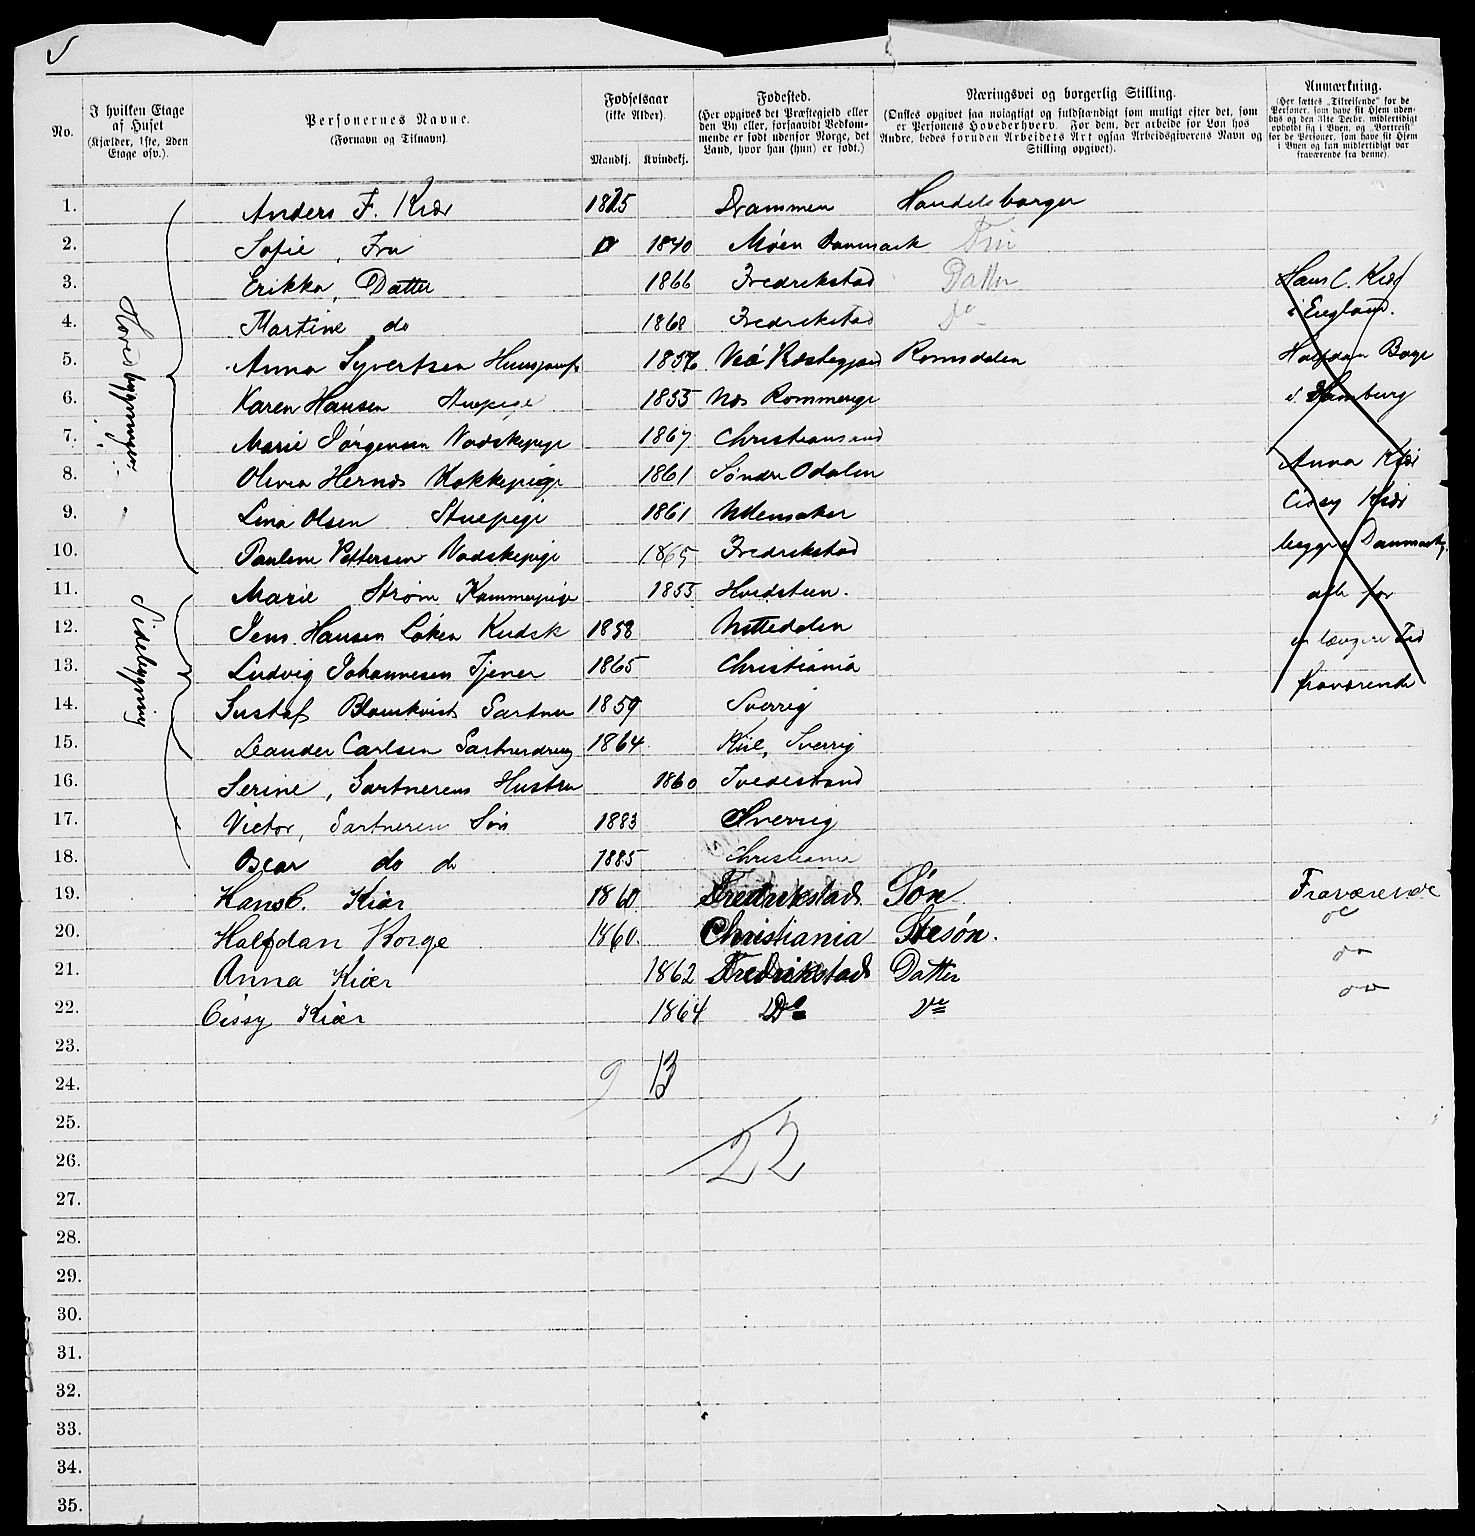 No.
I hvilken Etage af Huset (Kjælder, 1ste, 2den Etage osv.).
Personernes Navne. (Fornavn og Tilnavn)
Fødselsaar (ikke Alder).
Mandkj. Kvindekj.
Fødested. (Her opgives det Præstegjeld eller den By eller, forsaavidt Vedkommende er født udenfor Norge, det Land, hvor han (hun) er født.)
Næringsvei og borgerlig Stilling. (Ønskes opgivet saa nøiagtigt og fuldstændigt som muligt efter det, som er Personens Hovederhverv. For dem, der arbeide for Løn hos Andre, bedes foruden Arbeidets Art ogsaa Arbeidsgiverens Navn og Stilling opgivet).
Anmærkning. (Her sættes „Tilreisende" for de Personer, som have sit Hjem udenbys og den 31te Decbr. midlertidigt opholdt sig i Byen, og „Bortreist" for de Personer, som have sit Hjem i Byen og kun midlertidigt var fraværende fra denne).
Hovedbygningen
Sidebygning
1. Anders F. Kiær 1825 Drammen Handelsborger
2. Sofie, Fru 1840 Møen Danmark Fru
3. Erikka, Datter 1866 Fredrikstad Datter Hans C. Kiær
4. Martine do 1868 Fredrikstad Do i England.
5. Anna Syvertsen Huusjomfr 1857 Veø Præstegjæld Romsdalen Halfdan Borge
6. Karen Hansen Stuepige 1855 Næs Rommerige i Hamburg
7. Marie Jørgensen Vadskepige 1867 Christiansund
8. Olivia Hernæs Kokkepige 1861 Søndre Odalen Anna Kiær
9. Lina Olsen Stuepige 1861 Ullensaker Cissy Kiær
10. Pauline Pettersen Vadskepige 1865 Fredrikstad begge i Danmark,
11. Marie Strøm Kammerpige 1855 Hvidsteen. alle for
12. Jens Hansen Løken Kudsk 1858 Nittedalen en længere Tid
13. Ludvig Johannesen Tjener 1865 Christiania fraværende
14. Gustaf Blomkvist Gartner 1859 Sverrig
15. Leander Carlsen Gartnerdreng 1864 Kiil, Sverrig
16. Serine, Gartnerens Hustru 1860 Tvedestrand
17. Victor, Gartnerens Søn 1883 Sverrig
18. Oscar do do 1885 Christiania
19. Hans C. Kiær 1860 Fredrikstad Søn Fraværende
20. Halfdan Borge 1860. Christiania Stesøn. do
21. Anna Kiær 1862 Fredrikstad Datter do
22. Cissy Kiær 1864 Do Do do
23.
9 13
24.
25.
22
26.
27.
28.
29.
30.
31.
32.
33.
34.
35.